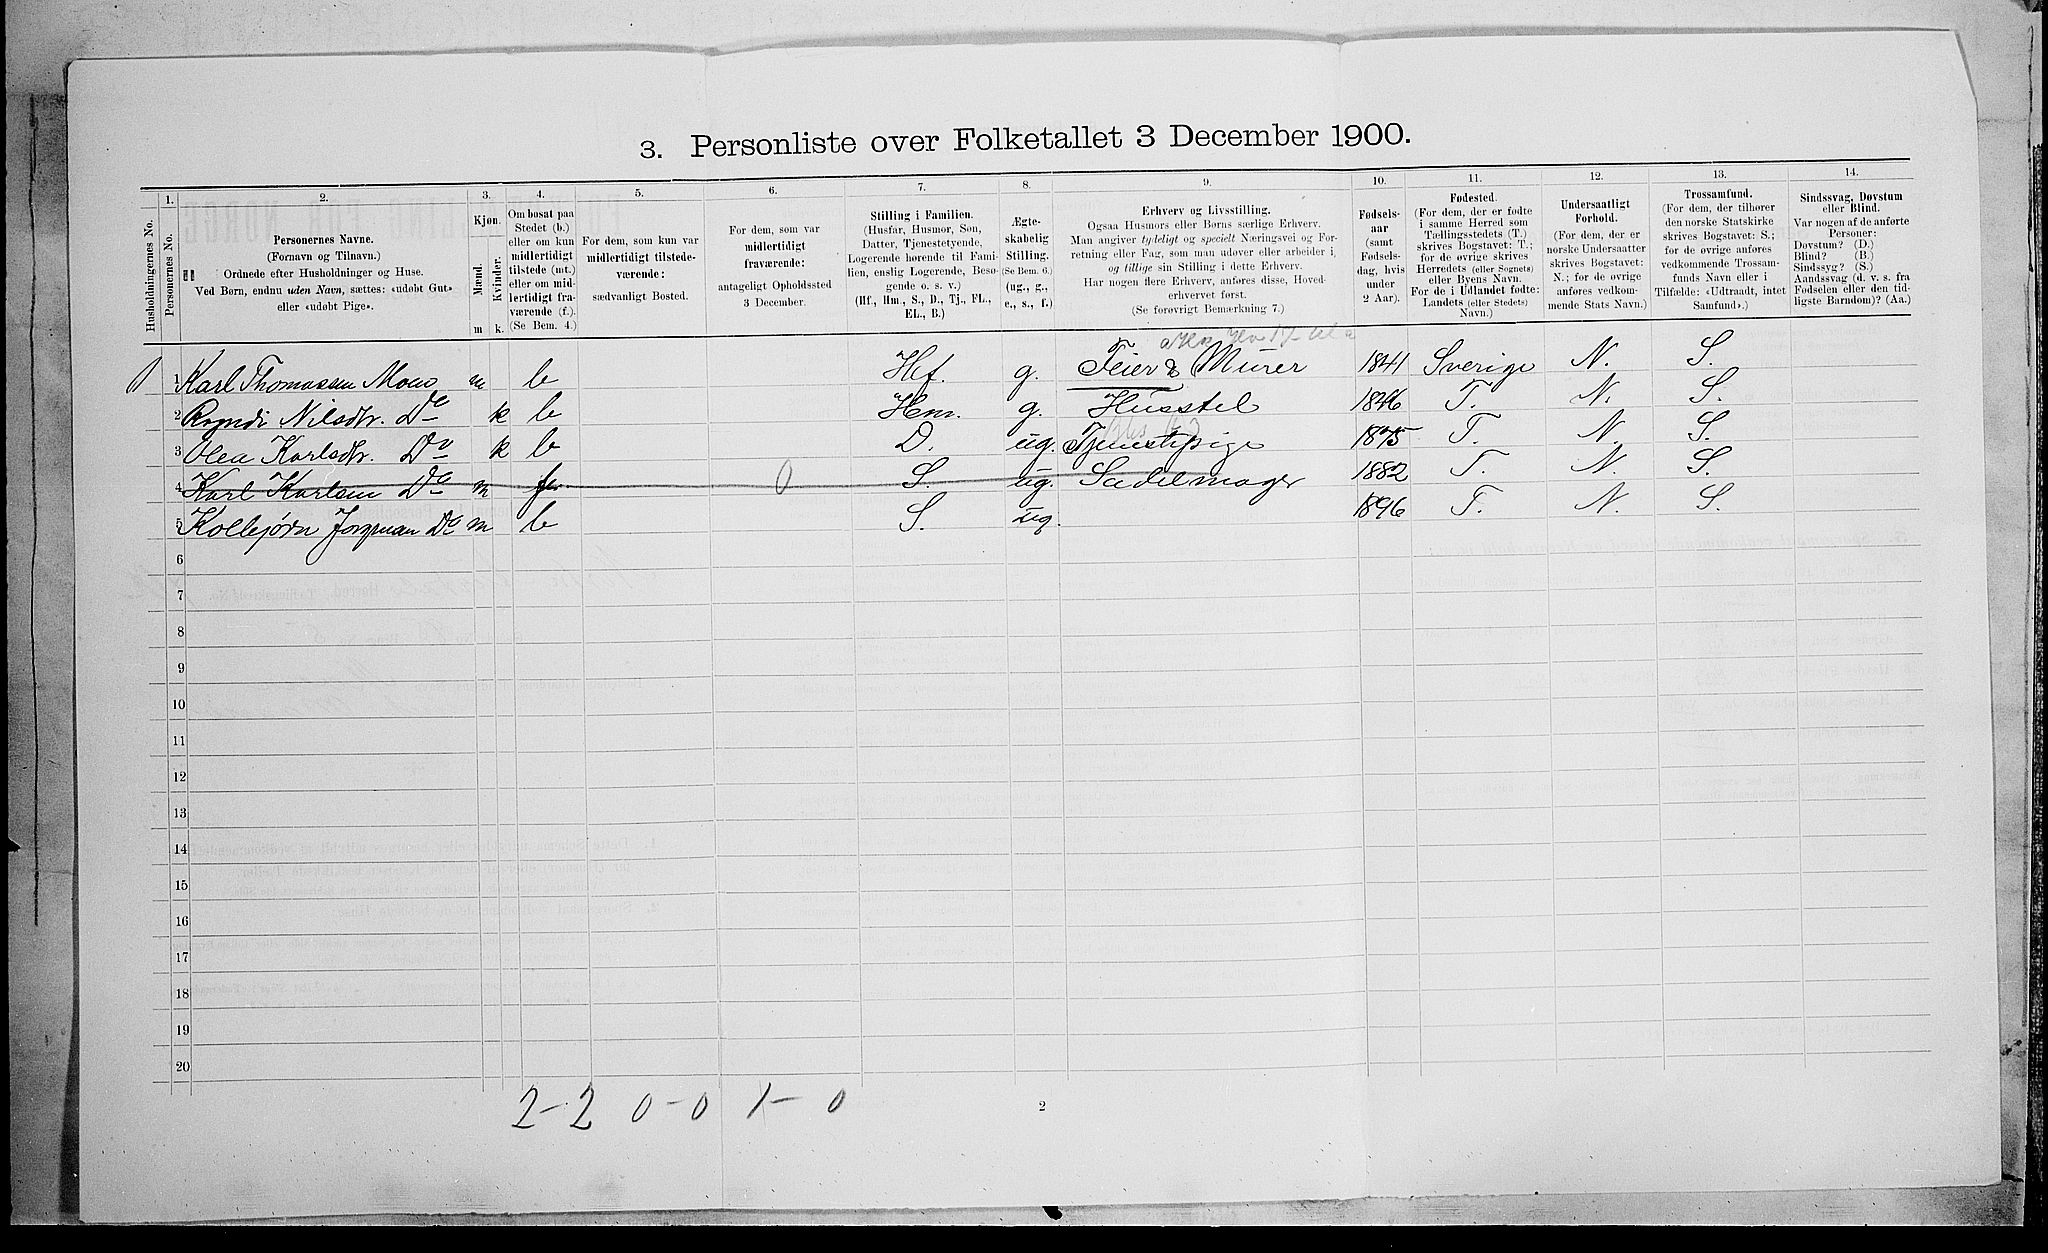 3. Personliste over Folketallet 3 December 1900.
Husholdningernes No.
1. Personernes No.
2. Personernes Navne. (Fornavn og Tilnavn.) Ordnede efter Husholdninger og Huse. Ved Børn, endnu uden Navn, sættes: «udøbt Gut» eller «udøbt Pige».
3. Kjøn. Mænd. Kvinder. m k.
4. Om bosat paa Stedet (b.) eller om kun midlertidigt tilstede (mt.) eller om midlertidigt fraværende (f.) (Se Bem. 4.)
5. For dem, som kun var midlertidigt tilstedeværende: sædvanligt Bosted.
6. For dem, som var midlertidigt fraværende: antageligt Opholdssted 3 December.
7. Stilling i Familien. (Husfar, Husmor, Søn, Datter, Tjenestetyende, Logerende hørende til Familien, enslig Logerende, Besøgende o. s. v.) (Hf., Hm., S., D., Tj., FL., EL., B.)
8. Ægteskabelig Stilling. (Se Bem. 6.) (ug., g., e., s., f.)
9. Erhverv og Livsstilling. Ogsaa Husmors eller Børns særlige Erhverv. Man angiver tydeligt og specielt Næringsvei og Forretning eller Fag, som man udøver eller arbeider i, og tillige sin Stilling i dette Erhverv. Har nogen flere Erhverv, anføres disse, Hovederhvervet først. (Se forøvrigt Bemærkning 7.)
10. Fødselsaar (samt Fødselsdag, hvis under 2 Aar).
11. Fødested. (For dem, der er fødte i samme Herred som Tællingsstedets (T.) skrives Bogstavet: T.; for de øvrige skrives Herredets (eller Sognets) eller Byens Navn. For de i Udlandet fødte: Landets (eller Stedets) Navn.)
12. Undersaatligt Forhold. (For dem, der er norske Undersaatter skrives Bogstavet: N.; for de øvrige anføres vedkommende Stats Navn.)
13. Trossamfund. (For dem, der tilhører den norske Statskirke skrives Bogstavet: S.; for de øvrige anføres vedkommende Trossamfunds Navn eller i Tilfælde: «Udtraadt, intet Samfund».)
14. Sindssvag, Døvstum eller Blind. Var nogen af de anførte Personer: Døvstum? (D.) Blind? (B.) Sindssyg? (S.) Aandssvag (d. v. s. fra Fødselen eller den tidligste Barndom)? (Aa.)
1 Karl Thomassen Moen m b Hf. g. Feier & Murer 1841 Sverige N. S.
2 Rogndi Nilsdtr. Do k b Hm. g. Husstel 1846 T. N. S.
3 Olea Karlsdtr. Do k b D. ug. Tjenestepige 1875 T. N. S.
4 Karl Karlsen Do m f 0 S. ug. Sadelmager 1882 T. N. S.
5 Kolbjørn Jorgman Do m b S. ug. 1896 T. N. S.
6
7
8
9
10
11
12
13
14
15
16
17
18
19
20
2-2 0-0 1-0
2